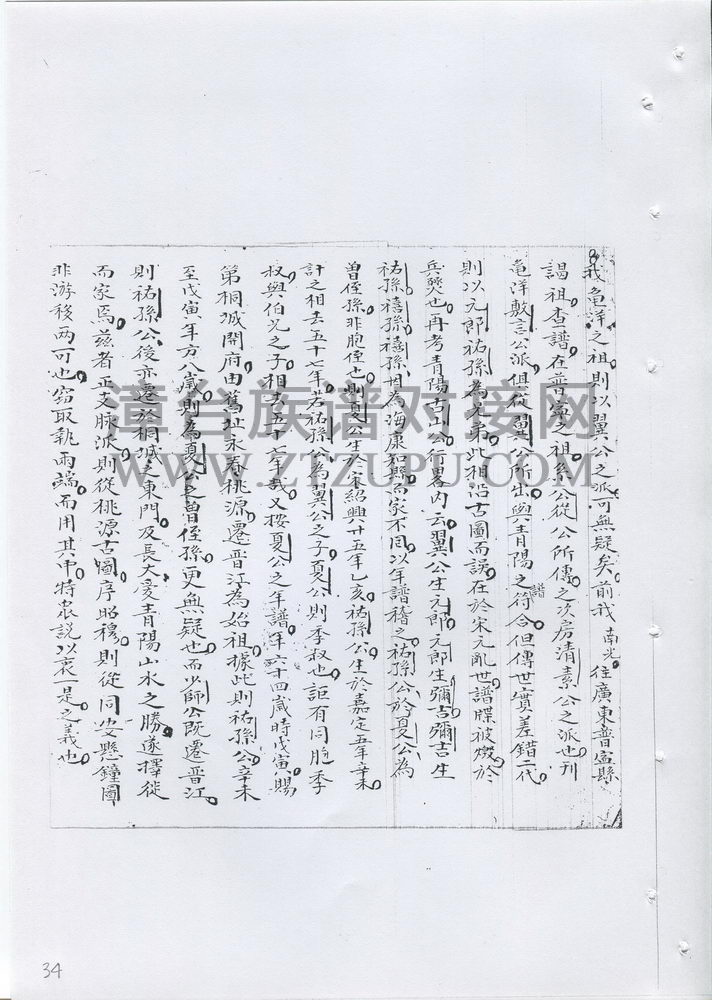 我龟洋之祖則以翼公之派可無疑矣前我南光往廣東普寧縣
謁祖查譜在普寧之祖系公從公所傳之次房清素公之派也刊
龟洋敷言公派俱從翼公所出與青陽之譜符合但傳世實差錯二代
則以元郎祐孫為兄弟此相沿古圖而誤在於宋元亂世譜牒被燬於
兵燹也再考青陽古山公行畧內云翼公生元郎元郎生彌吉彌吉生
祐孫禧孫僖孫因為海康知縣而家不同以年譜稽之祐孫公於夏公為
曾侄孫非胞侄也則夏公生於宋紹興廿五年乙亥祐孫公生於嘉定五年辛未
計之相去五十七年若祐孫公為翼公之子夏公則季叔也詎有同胞季
叔與伯兄之子相去五十七年哉又按夏公之年譜年六十四歲時戊寅賜
第桐城開府由舊址永春桃源遷晋江為始祖據此則祐孫公辛未
至戊寅年方八歲則為夏公之曾侄孫更無疑也而少師公既遷晋江
則祐孫公後亦遷於桐城之東門及長大愛青陽山水之勝遂擇徙
而家焉兹者正支脉派則從桃源古圖序昭穆則從同安懸鐘圖
非游移两可也窃取執两端而用其中特衆説以衷一是之義也
漳台族谱对接网
WWW.ZTZUPU.COM
34